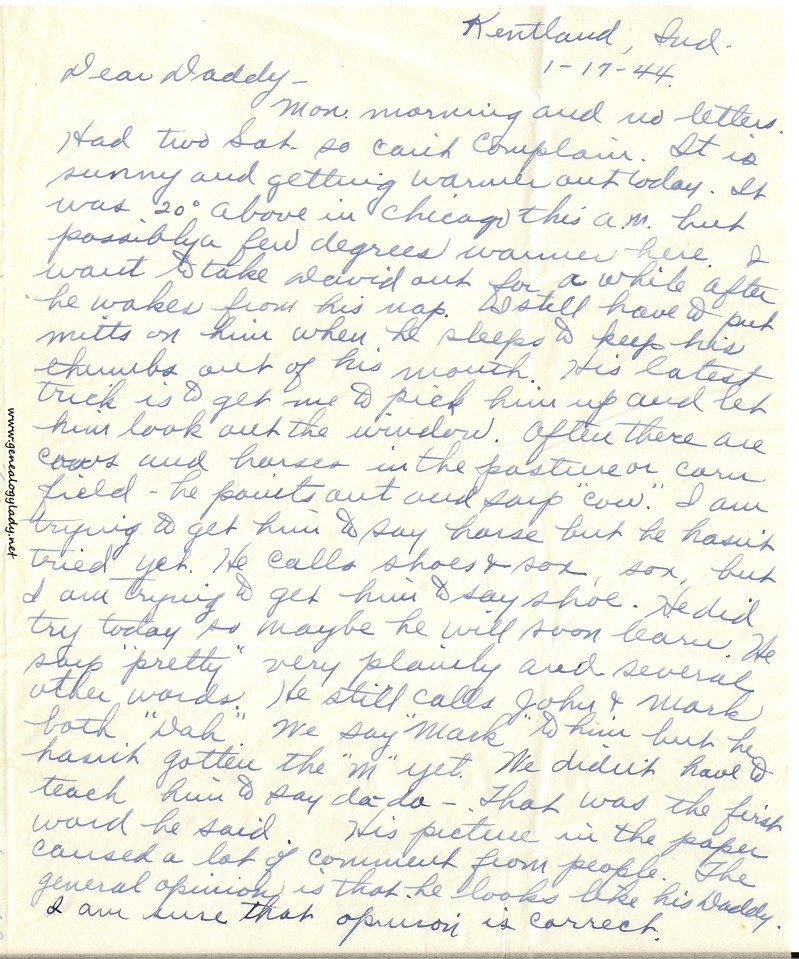 Kentland, Ind.
1-17-44.
Dear Daddy -
Mon. morning and no letters.
Had two Sat. so can't complain. It is
sunny and getting warmer out today. It
was 20° above in Chicago this a.m. but
possibly a few degrees warmer here. I
want to take David out for a while after
he wakes from his nap. I still have to put
mitts on him when he sleeps to keep his
thumbs out of his mouth. His latest
trick is to get me to pick him up and let
him look out the window. Often there are
cows and horses in the pasture or corn
field - he points out and says "cow." I am
trying to get him to say horse but he hasn't
tried yet. He calls shoes & sox, sox, but
I am trying to get him to say shoe. He did
try today so maybe he will soon learn. He
says "pretty" very plainly and several
other words. He still calls John & Mark
both "Dah". We say "Mark" to him but he
hasn't gotten the "m" yet. We didn't have to
teach him to say da-da - That was the first
word he said His picture in the paper
caused a lot of comment from people. The
general opinion is that he looks like his Daddy.
I am sure that opinion is correct.
www.genealogylady.net